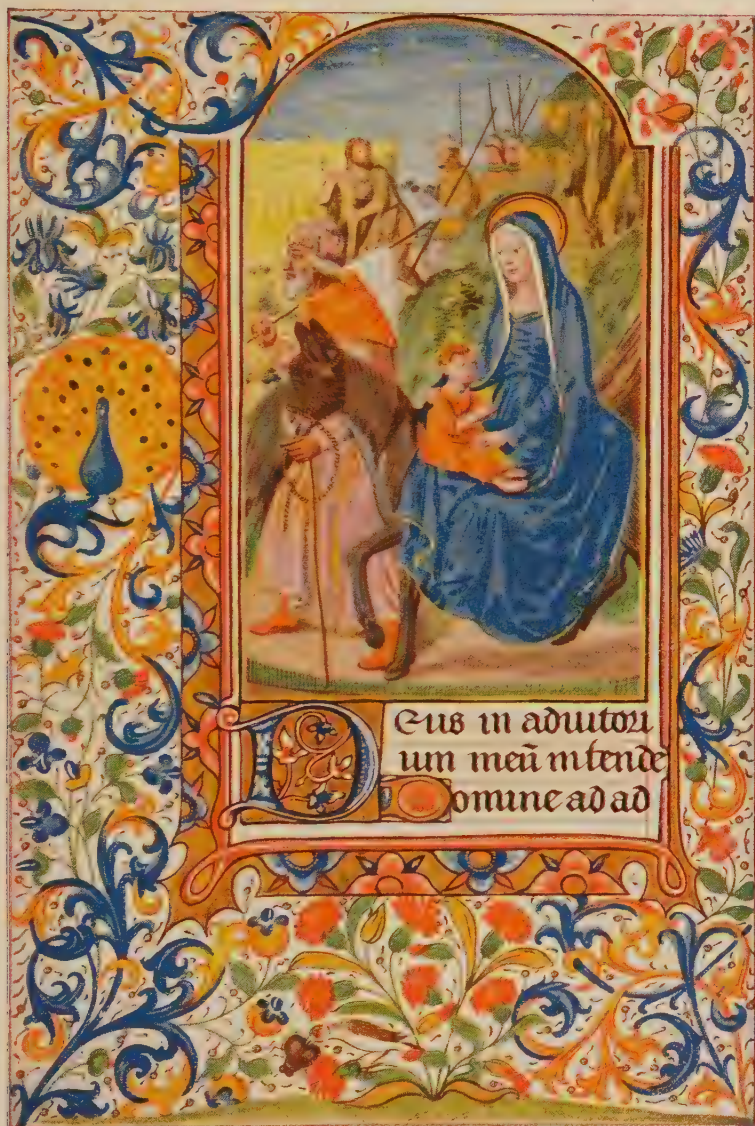 Deus in adiutori
um meū intende
Domine ad ad